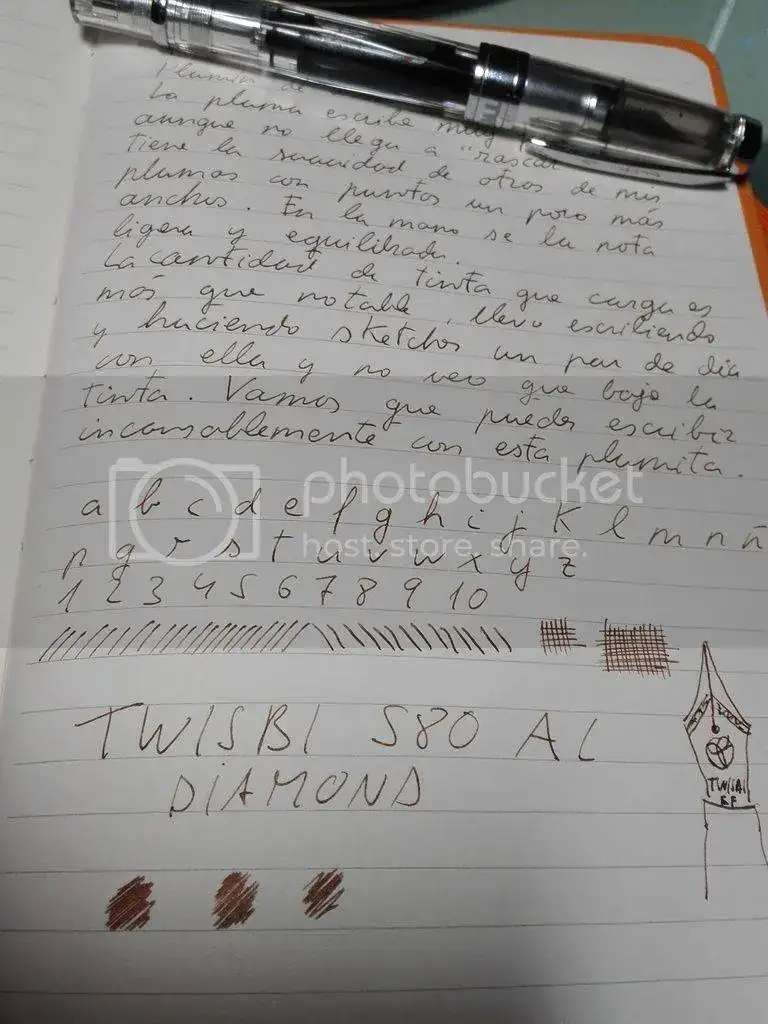 Plumin de
La pluma escribe muy
aunque no llega a "rascar
tiene la suavidad de otros de mis
plumas con puntos un poco más
anchos. En la mano se la nota
ligera y equilibrada.
La cantidad de tinta que carga es
más que notable, llevo escribiendo
y haciendo sketchos un par de dia
con ella y no veo que baje la
tinta. Vamos que puedes escribir
incansablemente con esta plumita.
a b c d e f g h i j k l m n ñ
p q r s t u v w x y z
1 2 3 4 5 6 7 8 9 10
TWISBI 580 AL
DiAMOND
TWISBI
EF
photobucket
host. store. share.